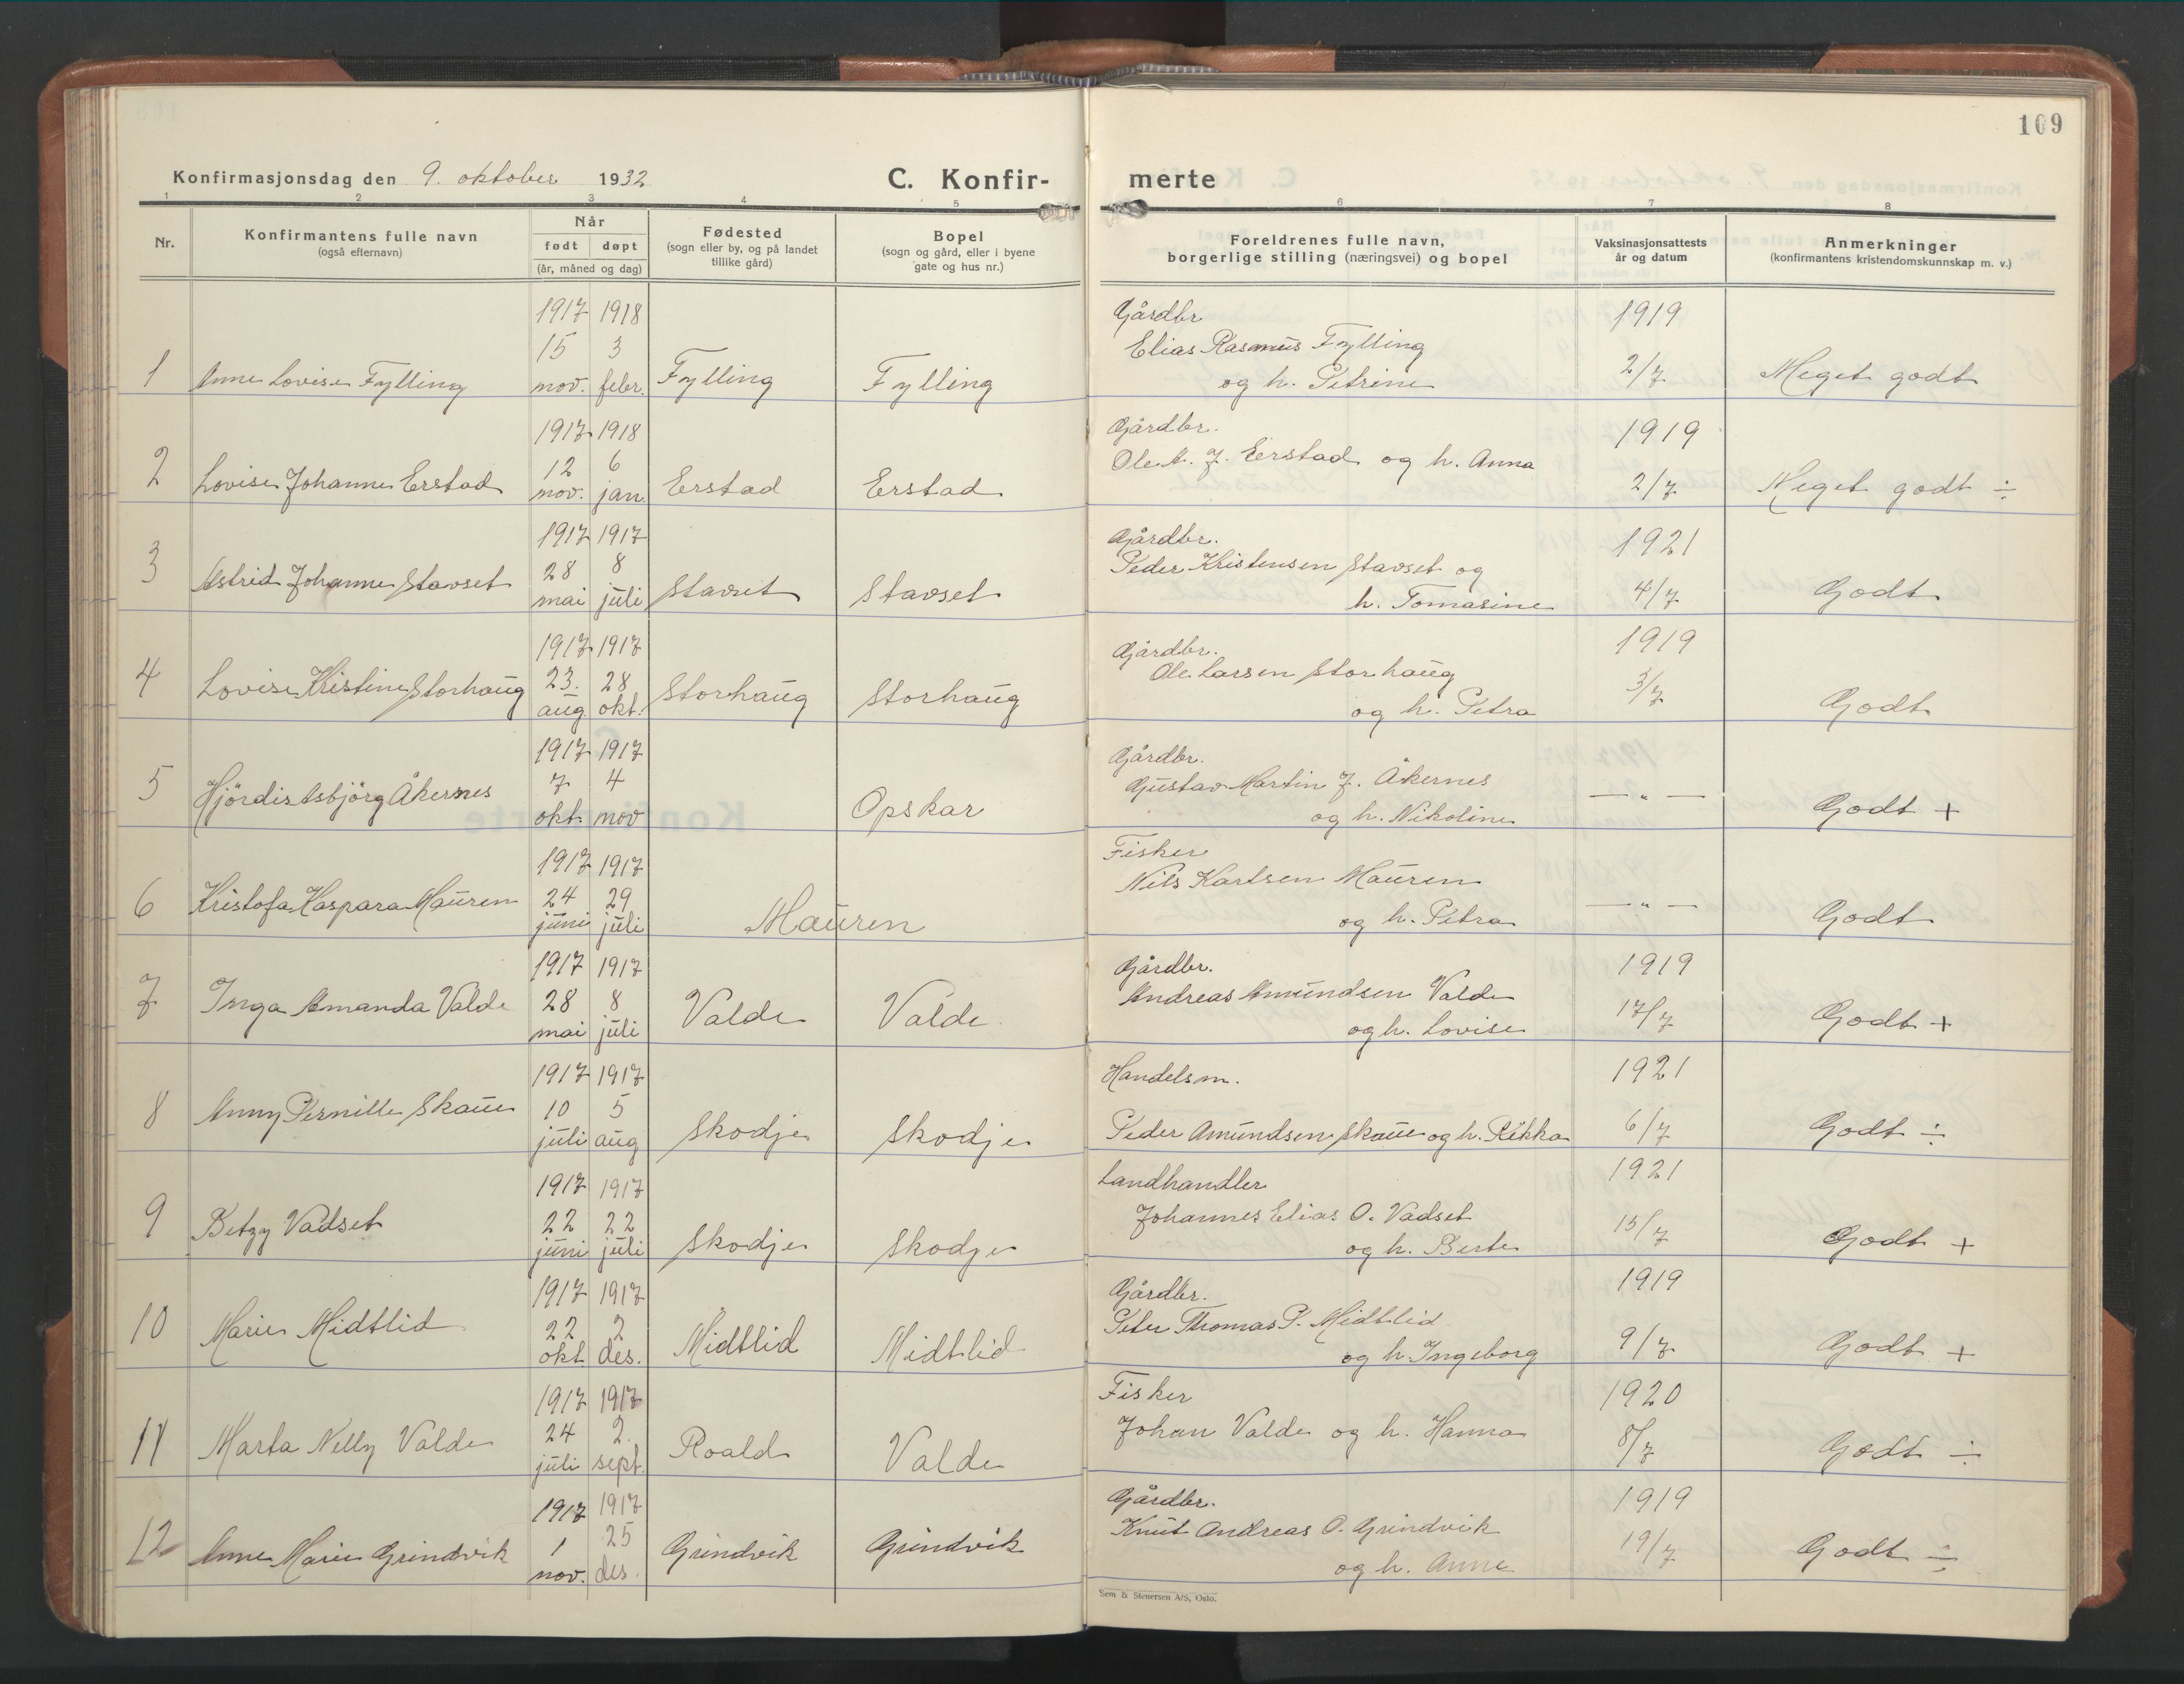 109
Konfirmasjonsdag den 9. oktober 1932
C. Konfir-
merte
1 2 3 4 5 6 7 8
Nr.
Konfirmantens fulle navn
(også efternavn)
Når
født døpt
(år, måned og dag)
Fødested
(sogn eller by, og på landet
tillike gård)
Bopel
(sogn og gård, eller i byene
gate og hus nr.)
Foreldrenes fulle navn,
borgerlige stilling (næringsvei) og bopel
Vaksinasjonsattests
år og datum
Anmerkninger
(konfirmantens kristendomskunnskap m. v.)
1917 1918 Gårdbr. 1919
15 3 Elias Rasmus Fylling
1 Anne Lovise Fylling nov. febr. Fylling Fylling og h. Petrine 2/7 Meget godt
1917 1918 Gårdbr. 1919
12 6 Ole A. J. Erstad og h. Anna
2 Lovise Johanne Erstad nov. jan. Erstad Erstad 2/7 Meget godt ÷
1917 1917 Gårdbr. 1921
28 8 Peder Kristensen Stavset og
3 Astrid Johanne Stavset mai juli Stavset Stavset h. Tomasine 4/7 Godt
1917 1917 Gårdbr. 1919
23. 28 Ole Larsen Storhaug
4 Lovise Kristine Storhaug aug. okt. Storhaug Storhaug og h. Petra 3/7 Godt
1917 1917 Gårdbr.
7 4 Gustav Martin J. Åkernes
5 Hjördis Asbjörg Åkernes okt. nov Opskar og h. Nikoline — " — Godt +
1917 1917 Fisker
24 29 Nils Karlsen Mauren
6 Kristofa Kaspara Mauren juni juli Mauren og h. Petra — " — Godt
1917 1917 Gårdbr. 1919
28 8 Andreas Amundsen Valde
7 Inga Amanda Valde mai juli Valde Valde og h. Lovise 17/7 Godt +
1917 1917 Handelsm. 1921
10 5
8 Anny Pernille Skaue juli aug Skodje Skodje Peder Amundsen Skaue og h. Rikka 6/7 Godt ÷
1917 1917 Landhandler 1921
22 22 Johannes Elias O. Vadset
9 Betzy Vadset juni juli Skodje Skodje og h. Berte 15/7 Godt +
1917 1917 Gårdbr. 1919
22 2 Peter Thomas P. Midtlid
10 Marie Midtlid okt des. Midtlid Midtlid og h Ingeborg 9/7 Godt +
1917 1917 Fisker 1920
24 2. Johan Valde og h. Hanna
11 Marta Nelly Valde juli sept. Roald Valde 8/7 Godt ÷
1917 1917 Gårdbr. 1919
1 25 Knut Andreas O. Grindvik
12 Anne Marie Grindvik nov. des. Grindvik Grindvik og h. Anne 19/7 Godt ÷
Sem & Stenersen A/S, Oslo.